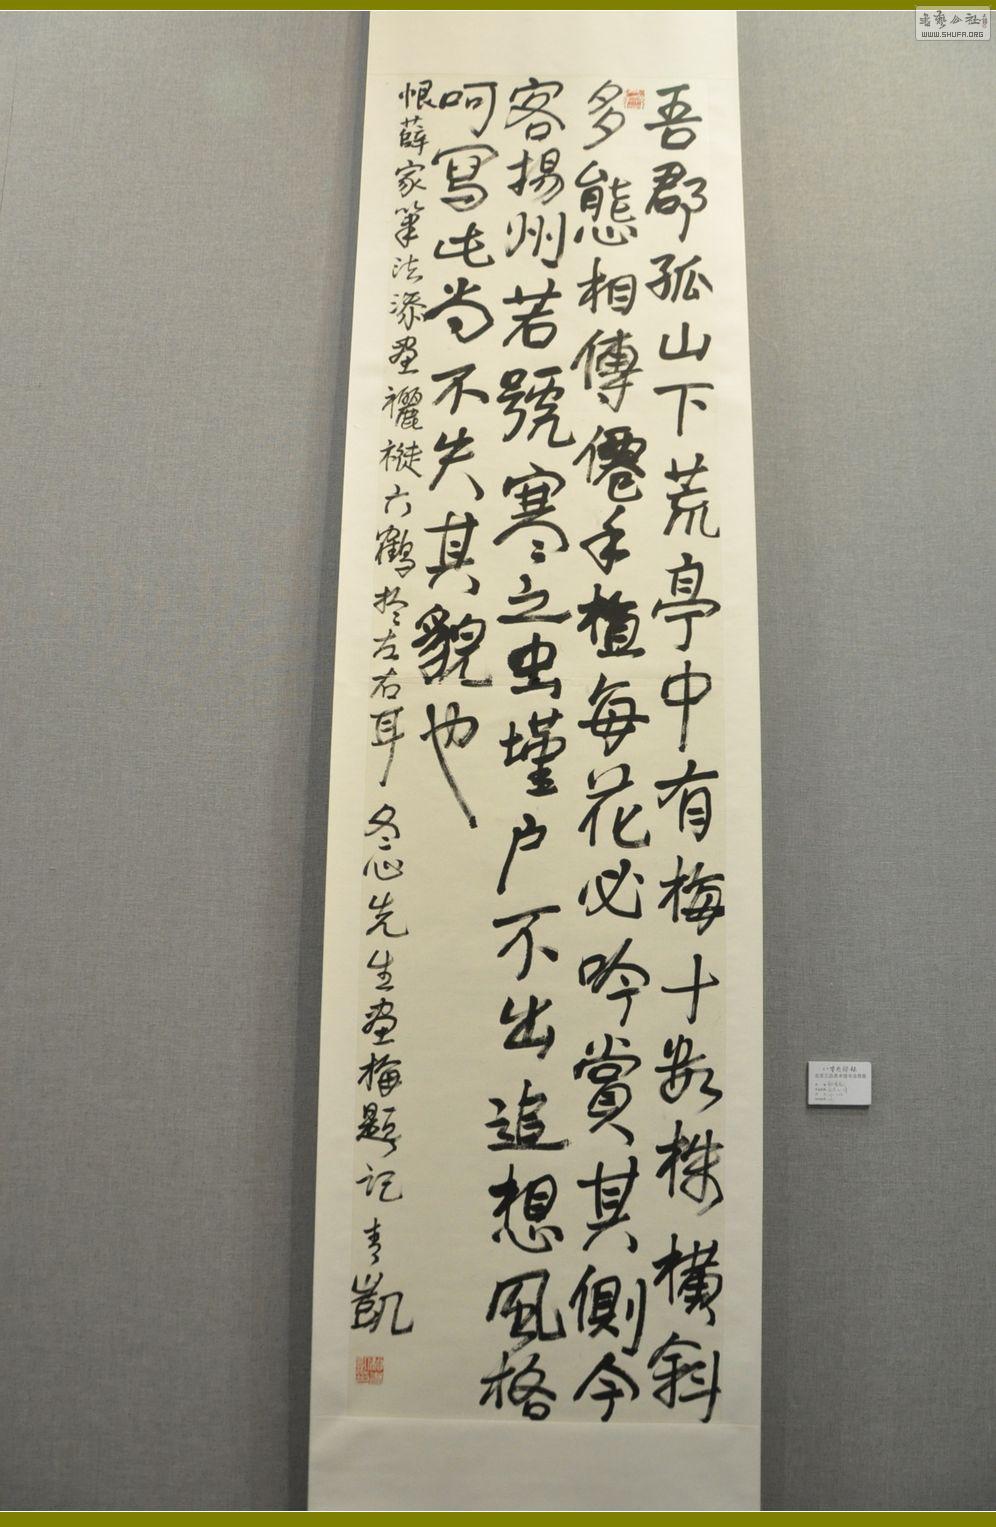 吾郡孤山下荒亭中有梅十數株橫斜
多態相傳僊手植每花必吟賞其側今
客揚州若號寒之虫墐户不出追想風格
呵寫此尚不失其貌也
恨薛家筆法添畫襹褷六鶴於左右耳 冬心先生畫梅題記 青凱
書藝公社
WWW.SHUFA.ORG